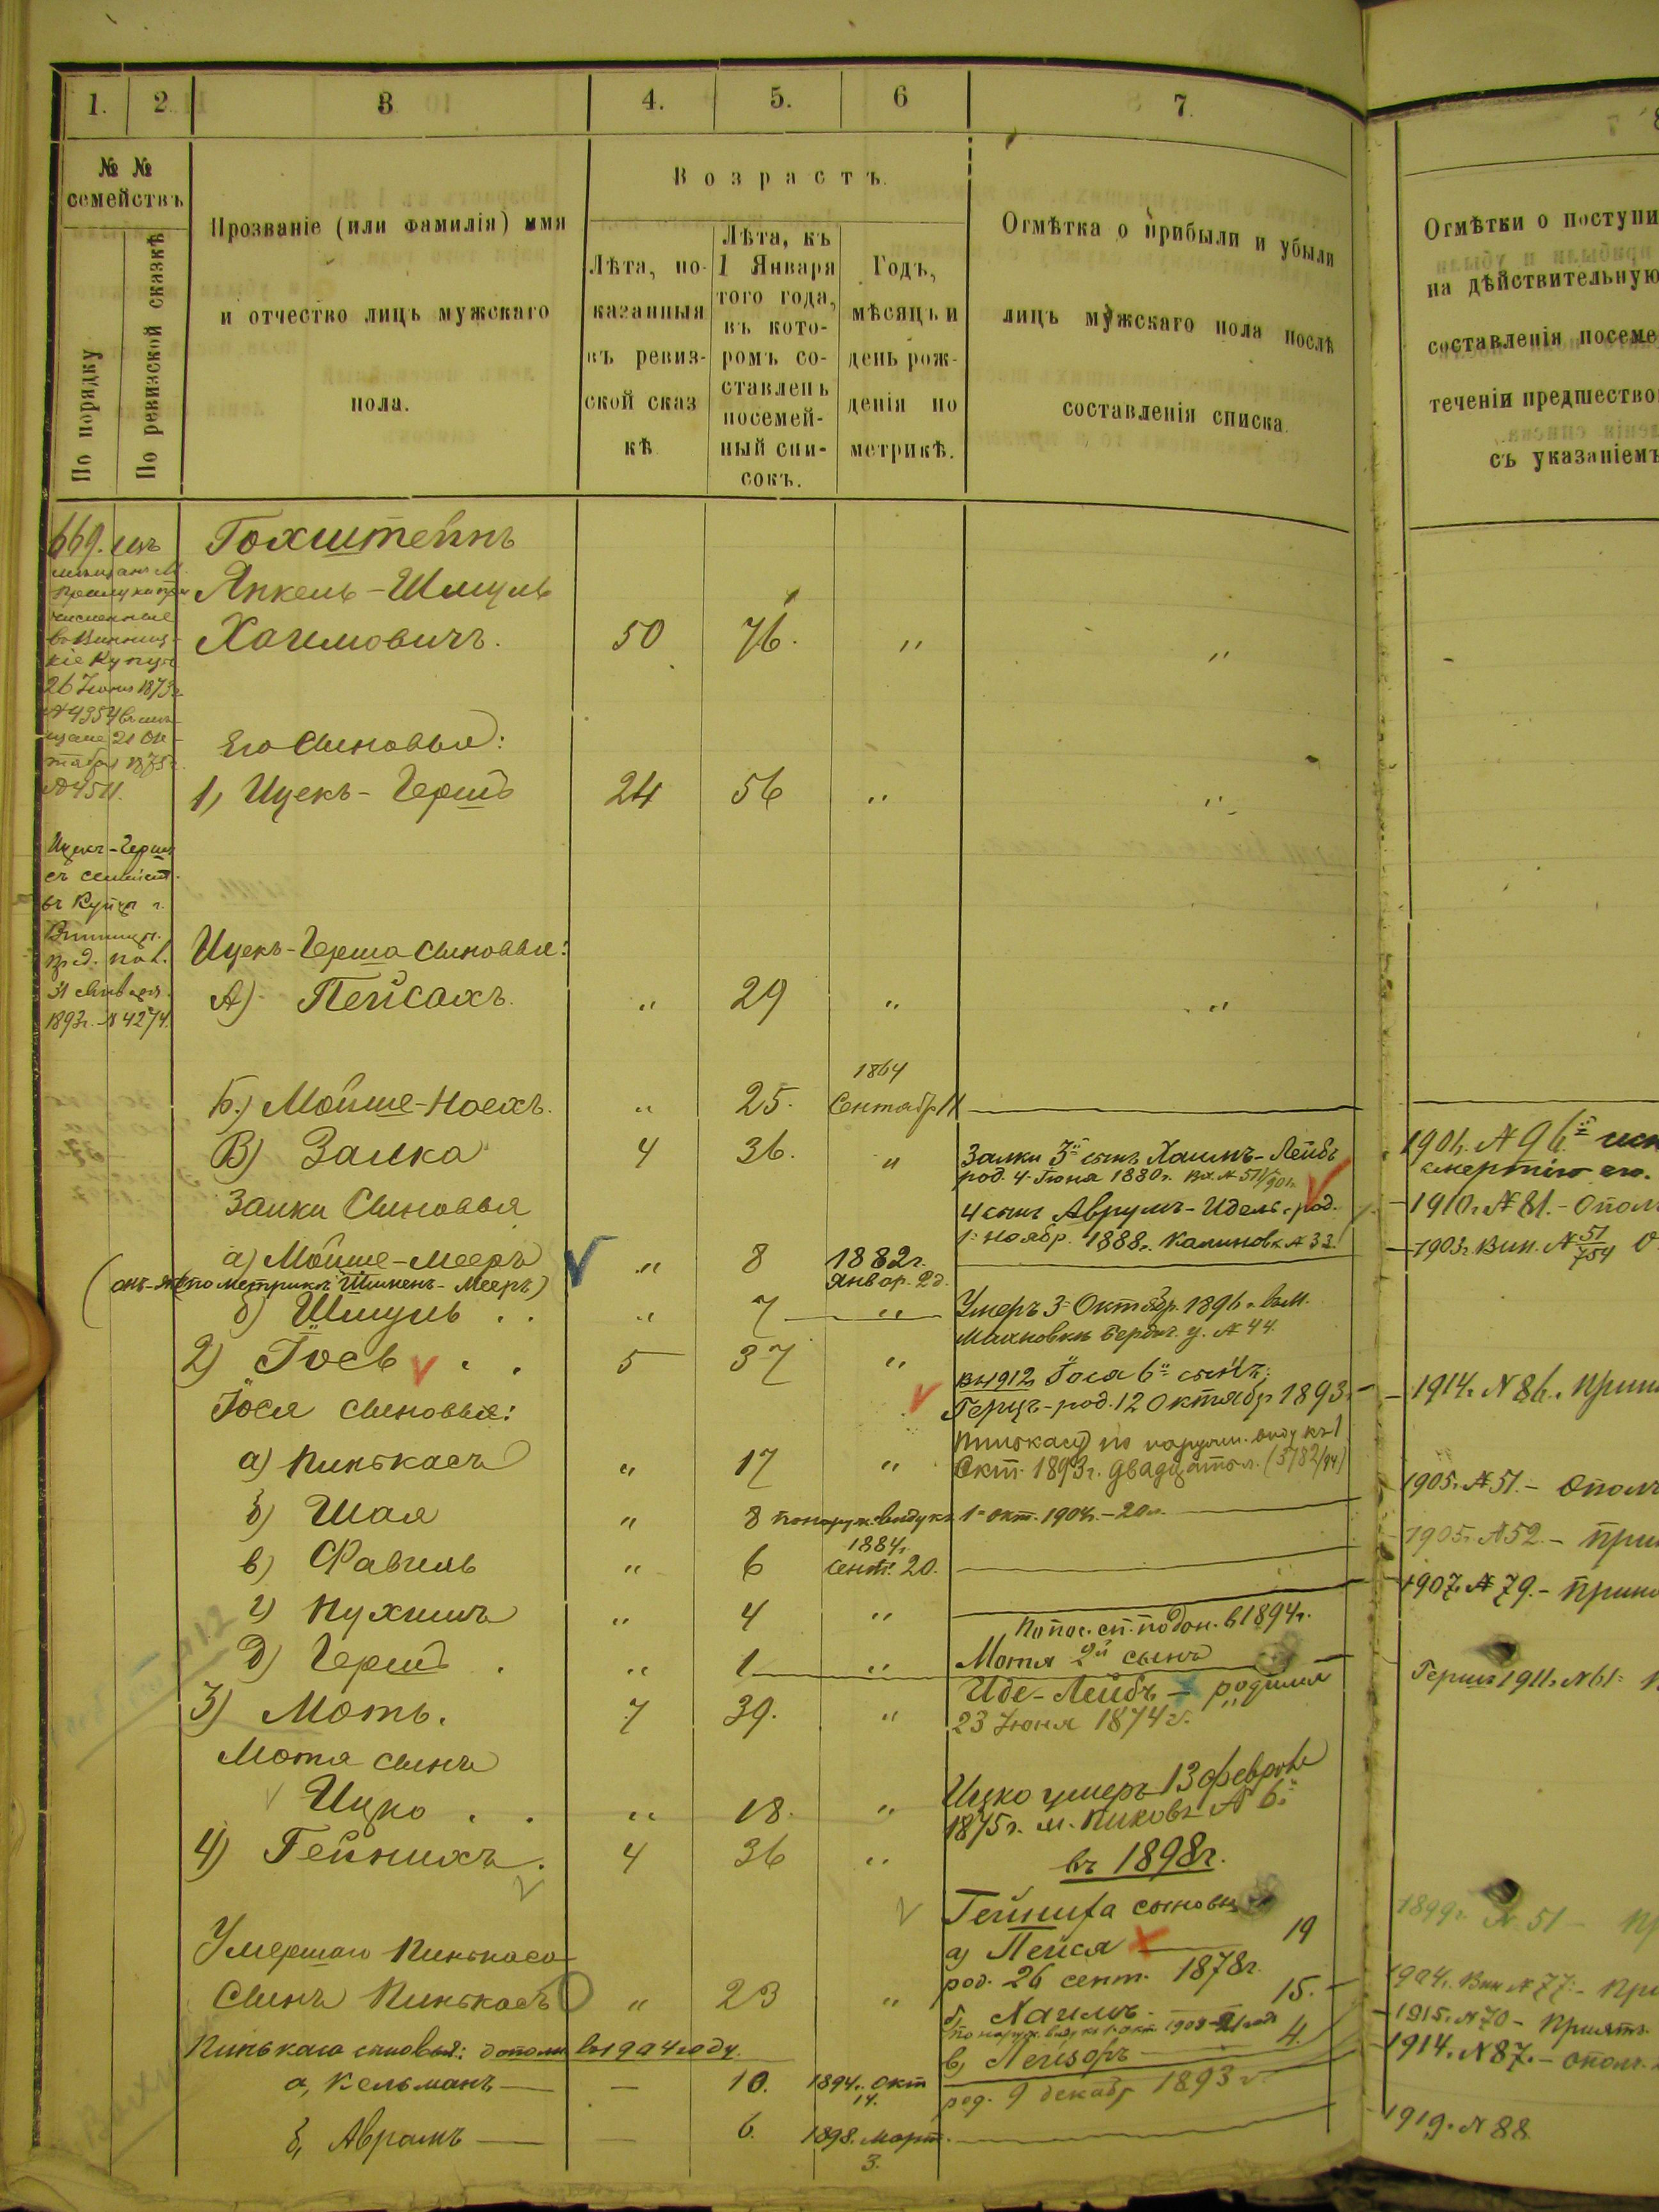 1. 2. 3 4. 5. 6 7.
№ № семействъ
По порядку
По ревизской сказкѣ
Прозваніе (или фамилія) имя
и отчество лицъ мужскаго
пола.
Возрастъ.
Лѣта, по-
казанныя
въ ревиз-
ской сказ
кѣ
Лѣта, къ
1 Января
того года,
въ кото-
ромъ со-
ставленъ
посемей-
ный спи-
сокъ.
Годъ,
мѣсяцъ и
день рож-
денія по
метрикѣ.
Отмѣтка о прибыли и убыли
лицъ мужскаго пола послѣ
составленія списка.
669. изъ
26 Іюня 1873г.
№ 4354
21 Ок-
тября 1875г.
№ 4511.
Гохштейнъ
Янкель-Шмуль
Хаимовичъ. 50 76. " "
Его сыновья:
1) Ицекъ-Гершъ 24 56 " "
Ицекъ-Гершъ
31 Января
1893г. № 4274.
Ицекъ-Герша сыновья:
А) Пейсахъ. " 29 " "
Б.) Мойше-Ноехъ. " 25. 1864 Сентябр 11
В) Залка 4 36. "
Залки 3й сынъ Хаимъ-Лейбъ
род. 4 Іюня 1880г.
Залки Сыновья
4 сынъ Аврумъ-Идель, род.
1 Ноябр. 1888г. Калиновк № 33.
а) Мойше-Мееръ " 8 1882г. Январ. 2 д.
(онъ-же по метрикѣ Шимень-Мееръ)
б) Шмуль . . " 7 "
Умеръ 3 Октябр. 1896г. въ м.
Махновкѣ Бердич. у. № 44.
2) Іось . . 5 37 "
въ 1912 Іося 6й сынъ:
Герцъ-род. 12 Октябр 1893г.
Іося сыновья:
а) Пинькасъ " 17 "
Пинькасу по наружн. виду къ 1
Окт. 1893г. двадцать л. (5782/94)
б) Шая " 8 по наруж. виду къ 1 окт. 1904г.-20л.
в) Файвель " 6 1884г. Сент. 20.
г) Нухимъ " 4 "
По пос. сп. по доп. в 1894г.
д) Гершъ . " 1 "
Мотя 2й сынъ
3) Моть. 7 39. "
Иде-Лейбъ - родился
23 Іюня 1874г.
Мотя сынъ
Ицко . . " 18. "
Ицко умеръ 13 февраля
1875г. м. Пиковъ № 6.
4) Гейнихъ. 4 36 "
въ 1898г.
Гейниха сыновья
а) Пейся 19
род. 26 сент. 1878г.
Умершаго Пинькаса
Сынъ Пинькасъ " 23 "
б, Хаимъ. 15.
по наруж. виду къ 1 окт. 1908-21 год
Пинькаса сыновья: дополн въ 1904 году.
в, Лейзоръ 4.
род. 9 декабр 1893г
а, Кельманъ — — 10. 1894г. Окт 14.
б, Аврамъ — — 6. 1898. Март. 3.
Отмѣтки о поступи
на дѣйствительную
составленія посеме
теченіи предшество
съ указаніемъ
смертію его.
1910г. № 81.- Опол
1903г. Вин. № 51/754
1914г. № 86. Прин
1905г. № 51.- Ополч
1905г. № 52.- При
1907г. № 79.- Прин
Гершъ 1911г. № 61:
1899г. № 51 - Пр
1904г. Вин № 77.- При
1915г. № 70 - Принятъ
1914г. № 87.- ополч.
1919г. № 88.